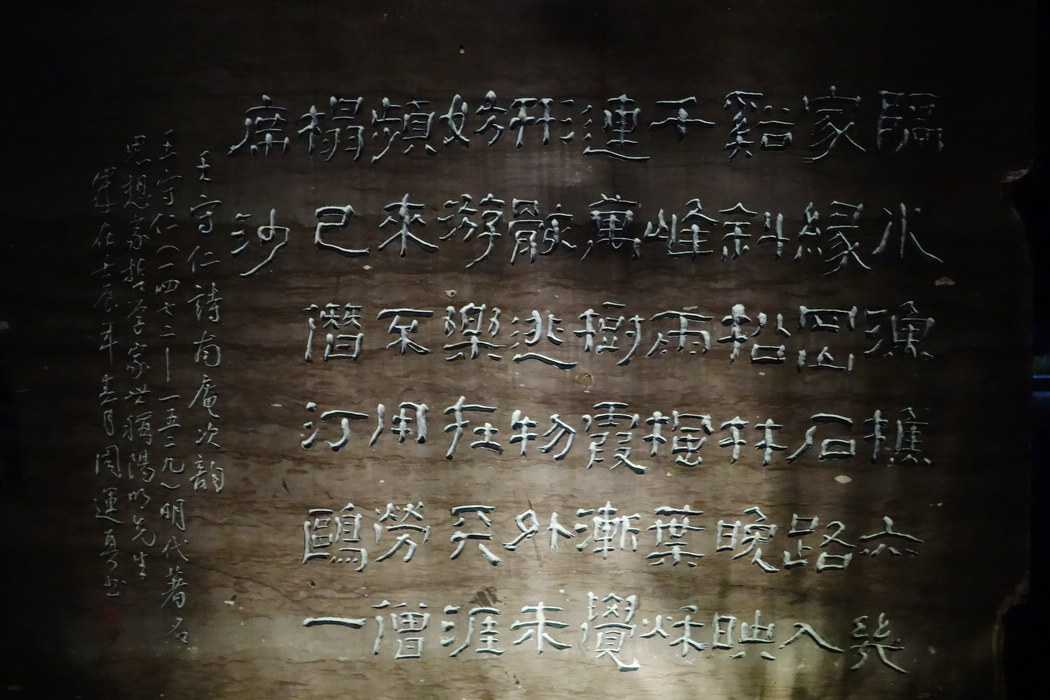 隔水漁樵亦幾
家緣岡石路入
谿斜松林晚映
千峰雨楓葉秋
連萬樹霞漸覺
形骸逃物外未
妨游樂在天涯
頻來不用勞僧
榻已潛汀鷗一
席沙
王守仁詩南庵次韻
王守仁(一四七二—一五二九)明代著名
思想家哲學家世稱陽明先生
歲在壬辰年春月周運真書